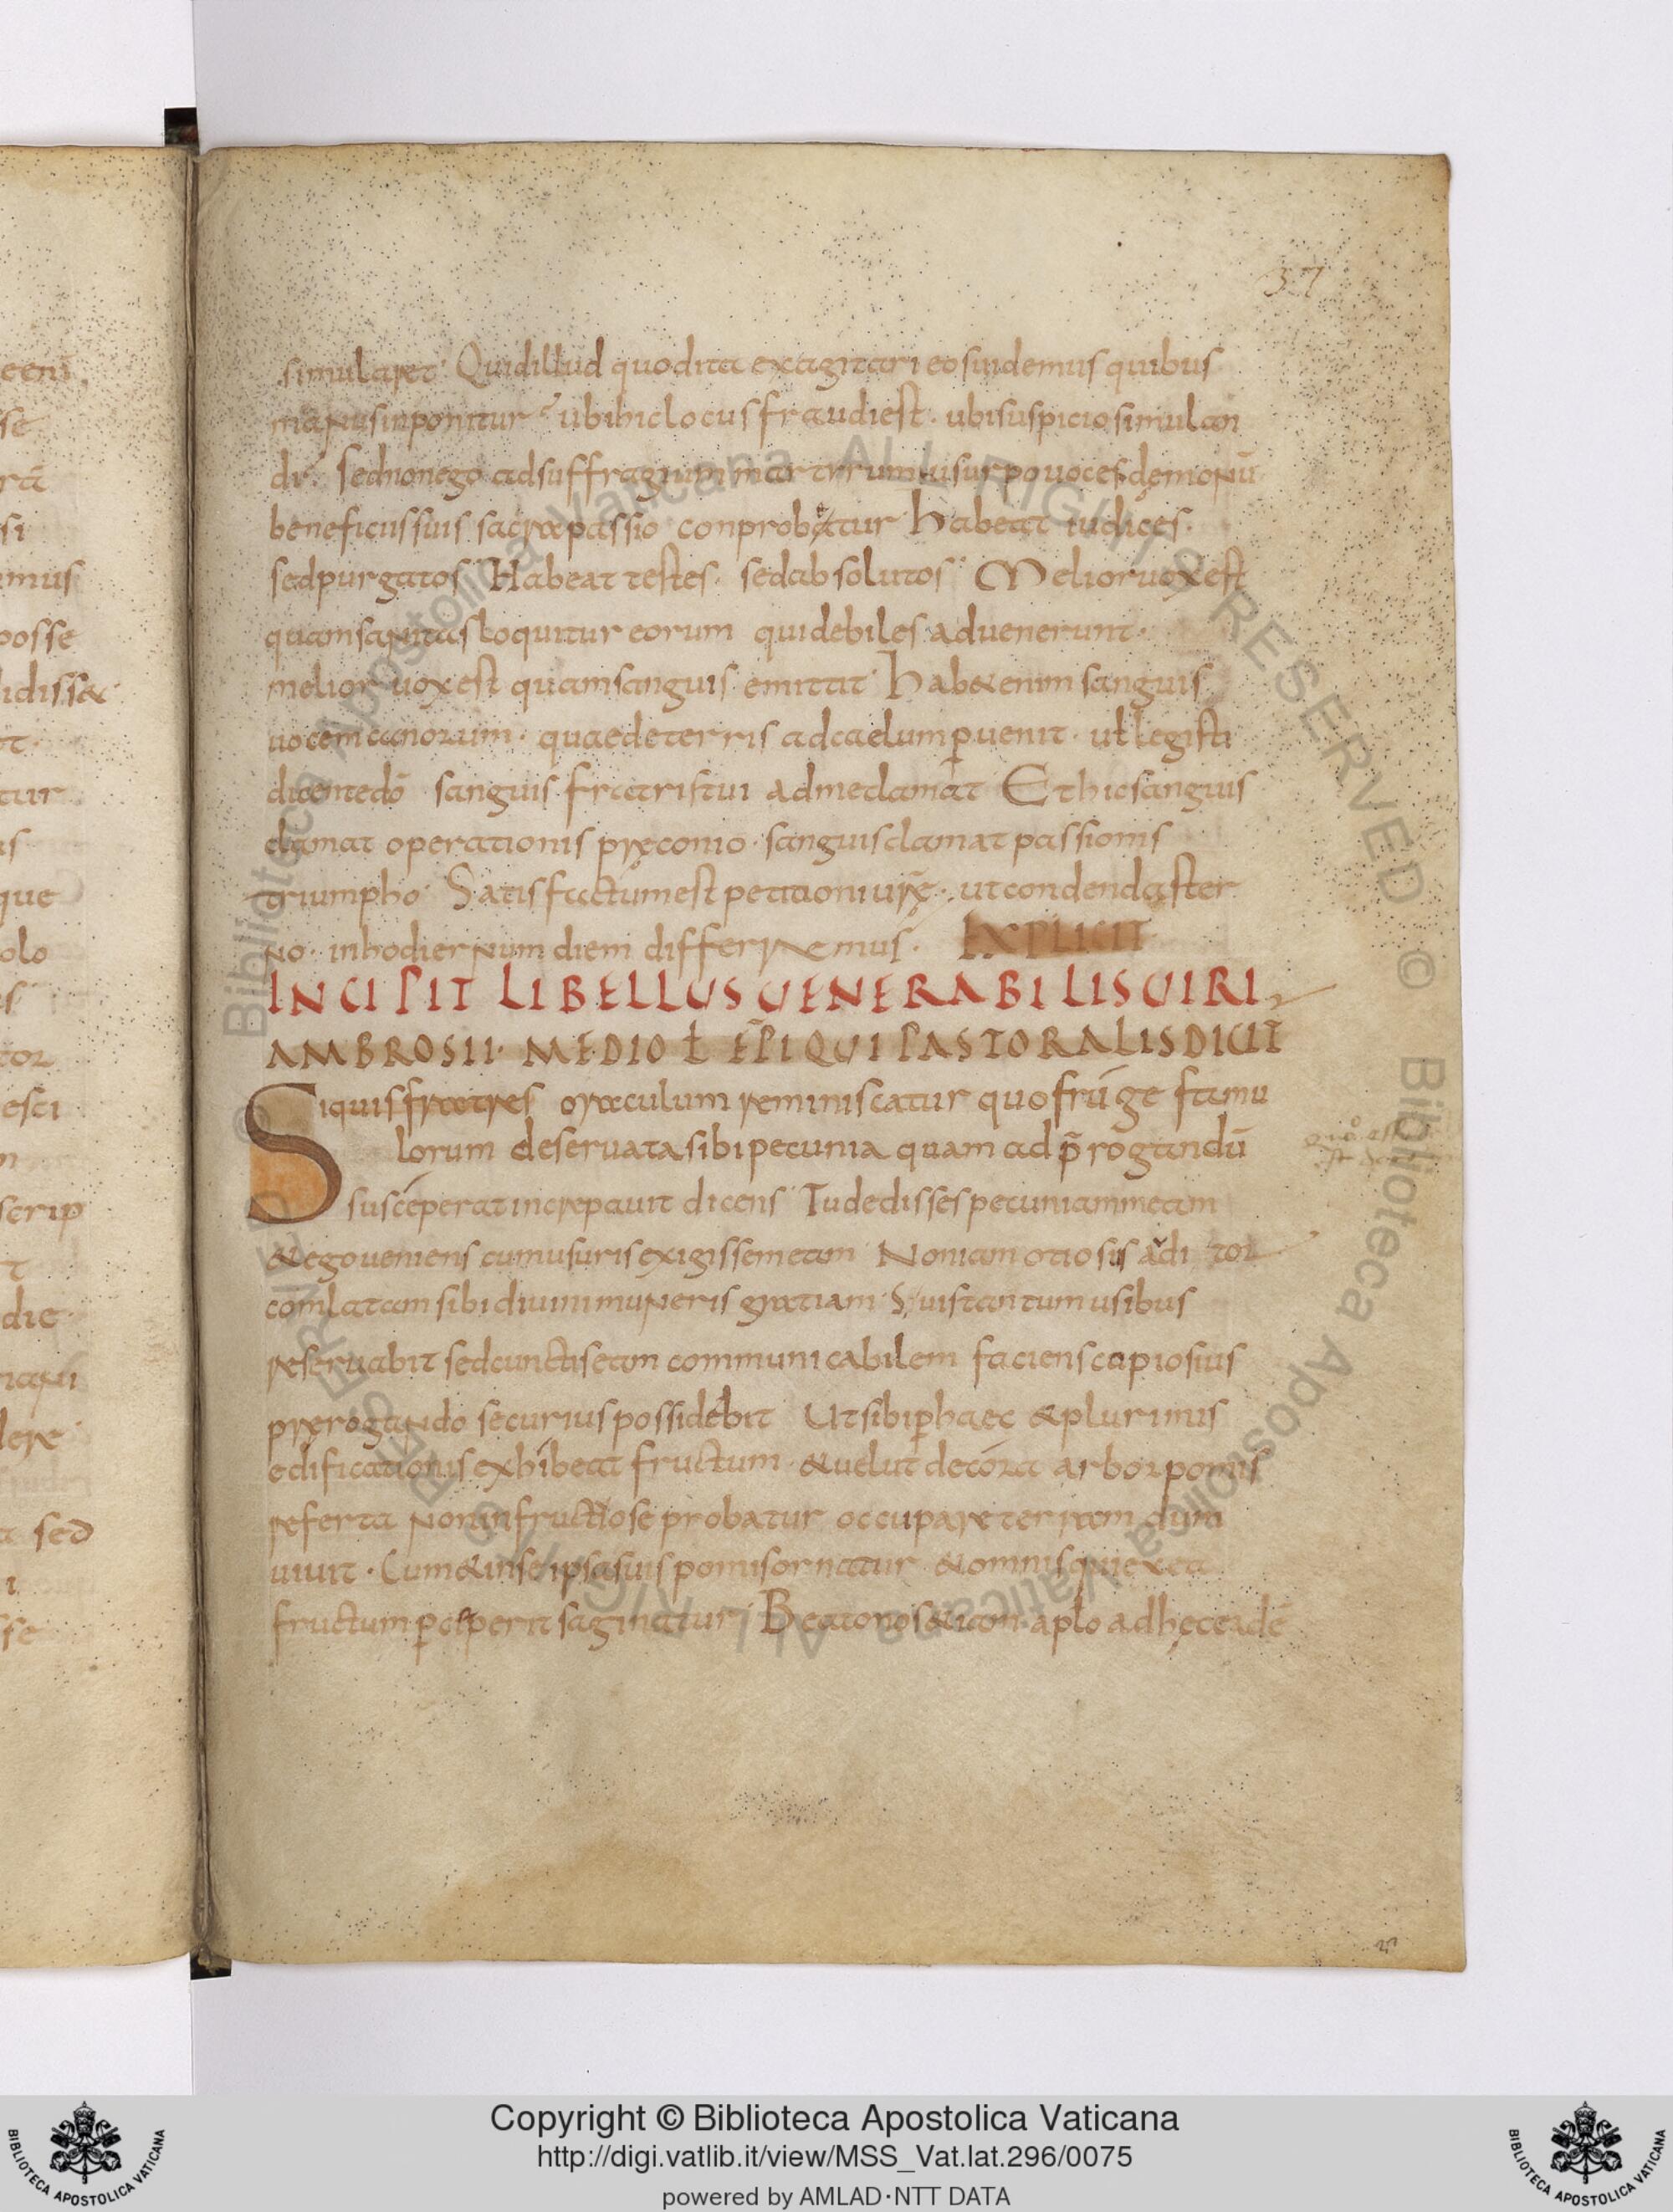 37
simularet Quid illud quod ita exagitari eos uidemus quibus
manus inponitur ubi hic locus fraudi est · ubi suspicio simulan
di Sed non ego ad suffragium martirum usurpo uoces demonū
beneficiis suis sacrae passio conprobatur Habeat iudices ·
sed purgatos Habeat testes · sed absolutos Melior uox est
quam sanitas loquitur eorum qui debiles aduenerunt ·
melior uox est quam sanguis emittat Hab& enim sanguis
uocem canoram · quae de terris ad caelum puenit · ut legisti
dicente dō sanguis fratris tui ad me clamat Et hic sanguis
clamat operationis pręconio · sanguis clamat passionis
triumpho Satis factum est petitioni urę · ut condendas ter
no in hodiernum diem differremus · EXPLICIT
INCIPIT LIBELLUS UENERABILIS UIRI
AMBROSII · MEDIOŁ EPI QUI PASTORALIS DICIT
Si quis fratres oraculum reminiscatur quo frūge famu
lorum de seruata sibi pecunia quam ad p̄rogandū
susceperat increpauit dicens Tu dedisses pecuniam meam
& ego ueniens cum usuris exigissem eam Non iam otiosus adi tor
comlatam sibi diuini muneris gratiam Suis tantum usibus
reseruabit sed cunctis eam communicabilem faciens copiosius
pręrogando securius possidebit Ut sibi phaec & plurimis
edificationis exhibeat fructum · & uelut decora arbor pomis
referta non infructuose probatur occupare terram dum
uiuit · Cum & in se ipsa suis pomis ornatur & omnis qui ex ea
fructum perit saginatur Beato nos etiam aplo ad hęc
Copyright © Biblioteca Apostolica Vaticana
http://digi.vatlib.it/view/MSS_Vat.lat.296/0075
powered by AMLAD·NTT DATA
BIBLIOTECA APOSTOLICA VATICANA
BIBLIOTECA APOSTOLICA VATICANA